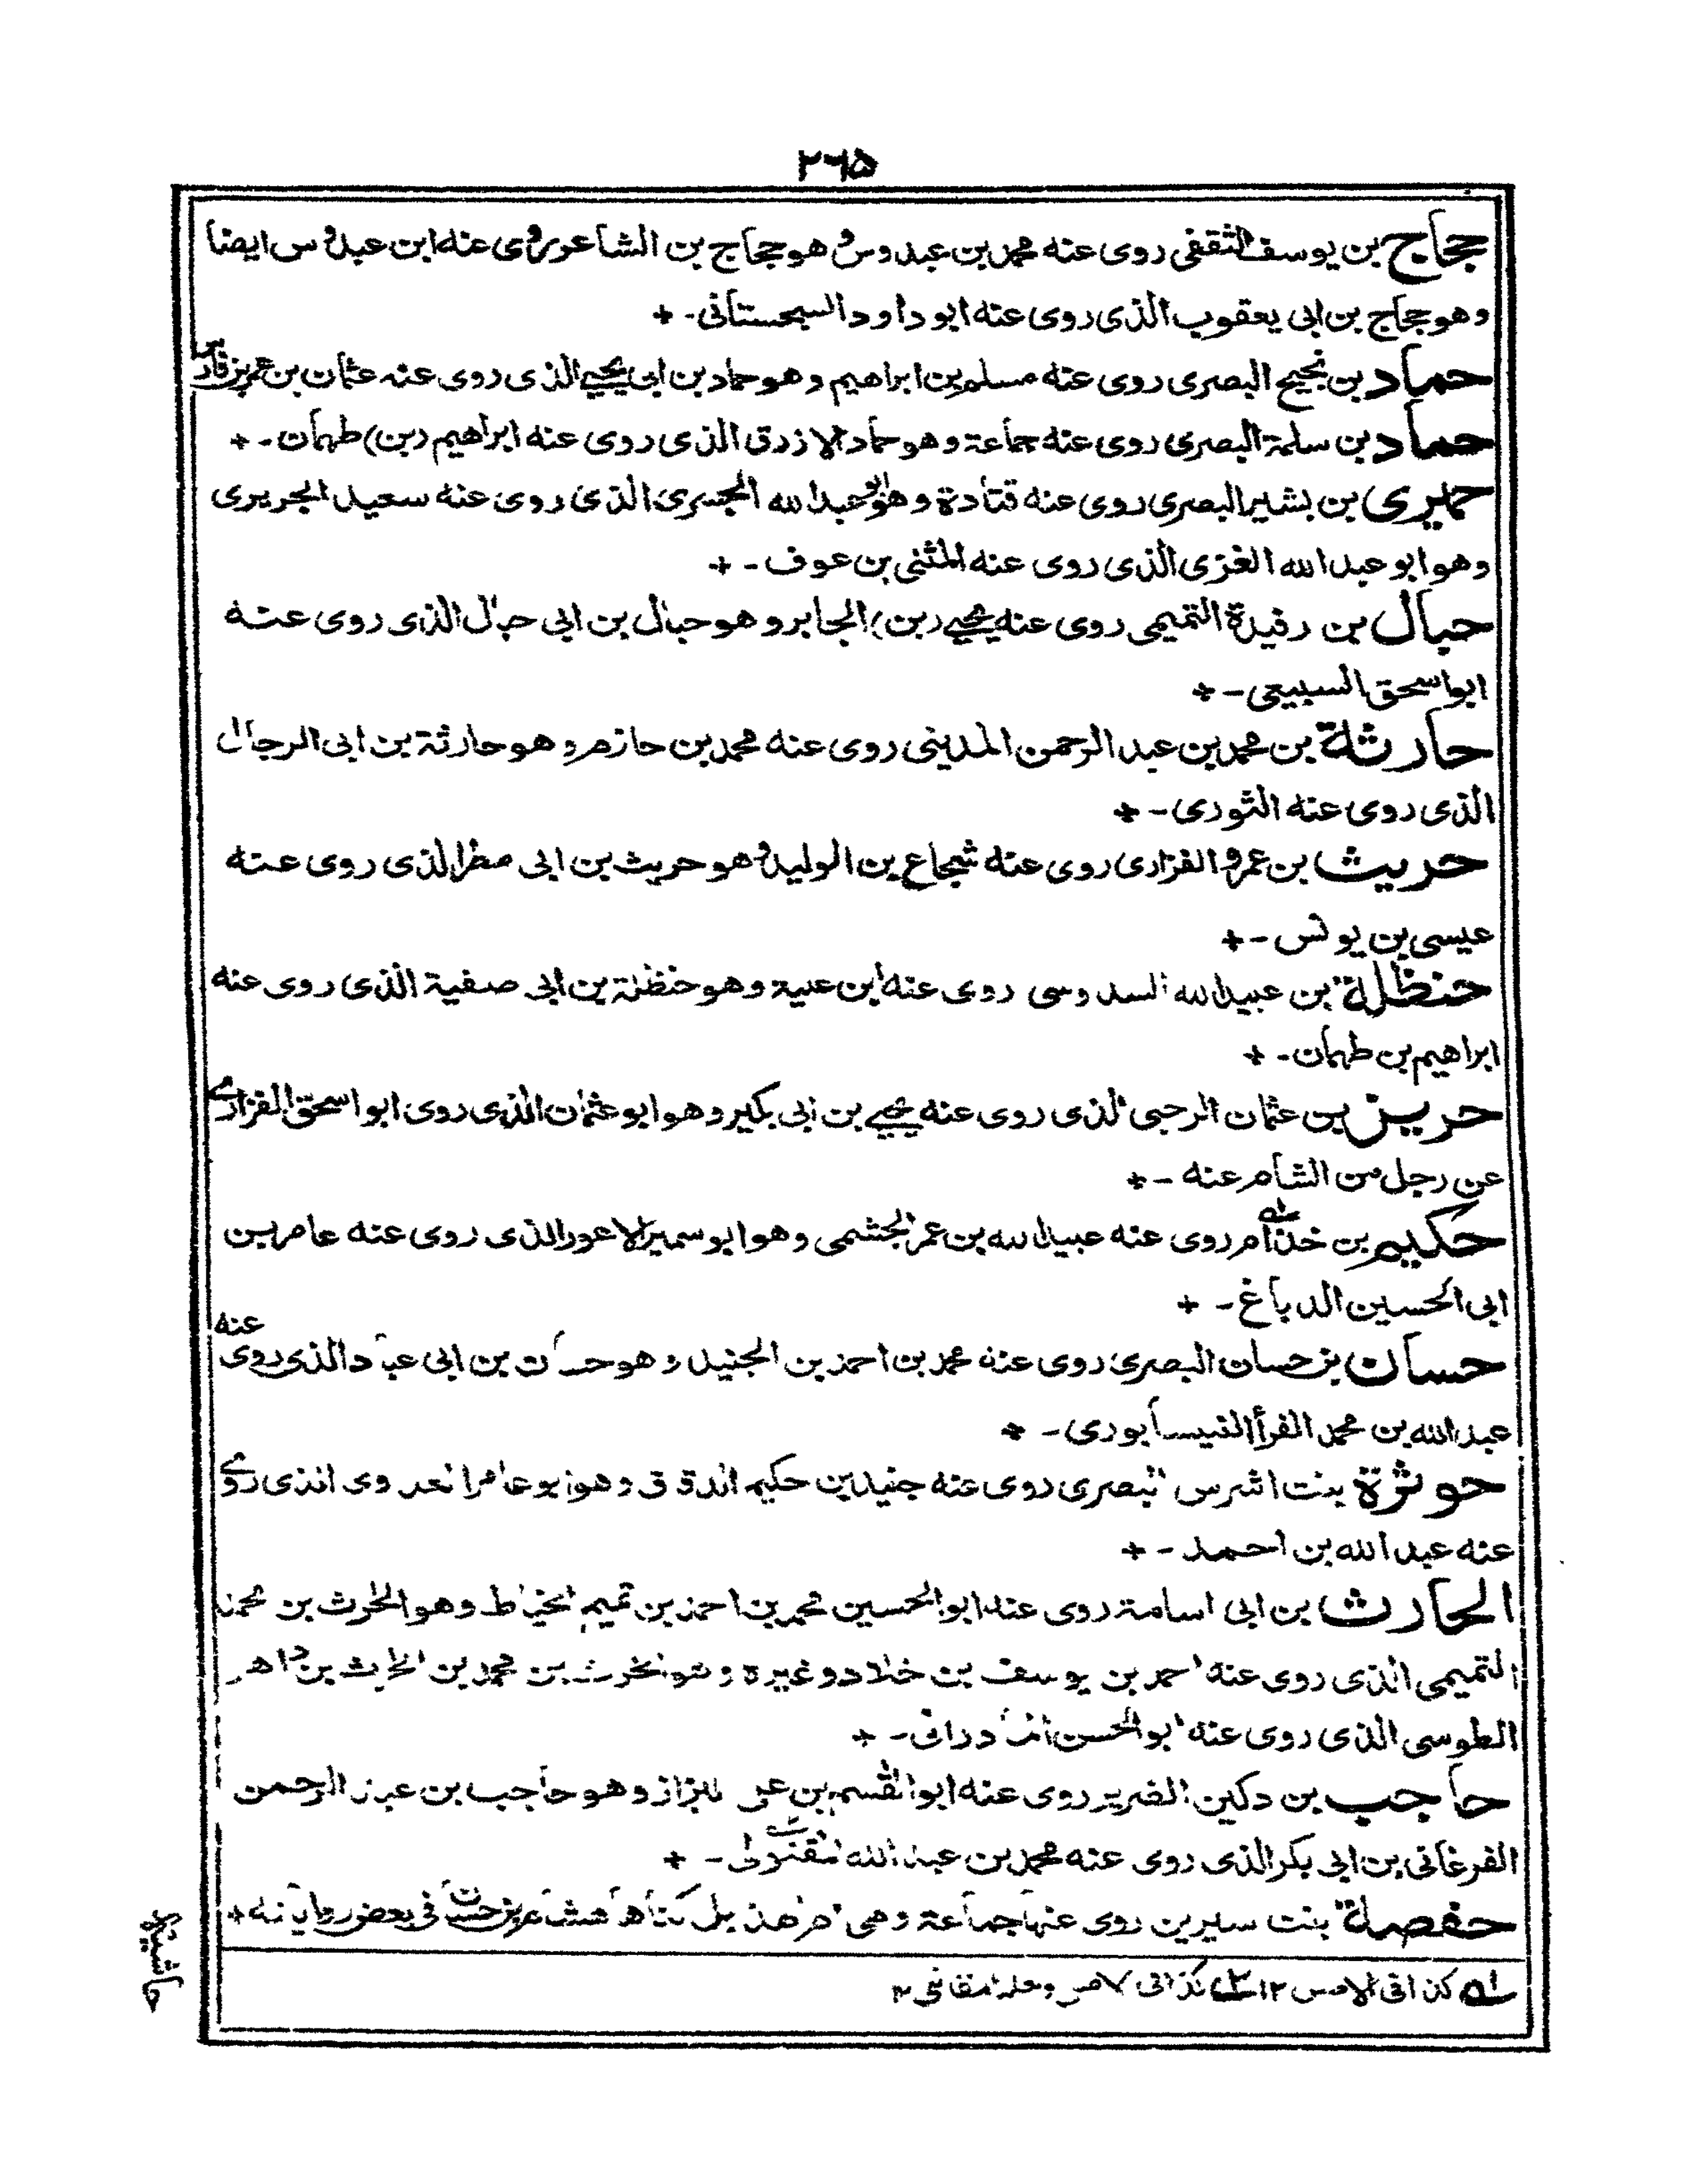 ٢٦٥
حجاج بن يوسف الثقفي روى عنه محمد بن عبدوس وهو حجاج بن الشاعر روى عنه ابن عبدوس ايضا
وهو حجاج بن ابى يعقوب الذى روى عنه ابو داود السجستانى -٠
حماد بن نجيح البصرى روى عنه مسلم بن ابراهيم وهو حماد بن ابى يحيى الذى روى عنه عثمان بن عمر بن فارس
حماد بن سلمة البصرى روى عنه جماعة وهو حماد الازرق الذى روى عنه ابراهيم (بن) طهمان -٠
حميرى بن بشير البصرى روى عنه قتادة وهو ابو عبد الله الجسرى الذى روى عنه سعيد الجريرى
وهو ابو عبد الله الغزى الذى روى عنه المثنى بن عوف -٠
حبال بن رفيدة التميمى روى عنه يحيى (بن) الجابر وهو حبال بن ابى حبال الذى روى عنه
ابو اسحق السبيعى -٠
حارثة بن محمد بن عبد الرحمن المدينى روى عنه محمد بن حازم وهو حارثة بن ابى الرجال
الذى روى عنه الثورى -٠
حريث بن عمرو الفزارى روى عنه شجاع بن الوليد وهو حريث بن ابى مطر الذى روى عنه
عيسى بن يونس -٠
حنظلة بن عبيد الله السدوسى روى عنه ابن علية وهو حنظلة بن ابى صفية الذى روى عنه
ابراهيم بن طهمان -٠
حريز بن عثمان الرحبى الذى روى عنه يحيى بن ابى بكير وهو ابو عثمان الذى روى ابو اسحق الفزارى
عن رجل من الشام عنه -٠
حكيم بن خذام روى عنه عبيد الله بن عمر الجشمى وهو ابو سمير الاعور الذى روى عنه عامر بن
ابى الحسين الدباغ -٠
حسان بن حسان البصرى روى عنه محمد بن احمد بن الجنيد وهو حسان بن ابى عباد الذى روى عنه
عبد الله بن محمد الفرأ النيسابورى -٠
حوثرة بنت اشرس البصرى روى عنه جنيد بن حكيم الدقاق وهو ابو عامر العدوى الذى روى
عنه عبد الله بن احمد -٠
الحارث بن ابى اسامة روى عنه ابو الحسين محمد بن احمد بن تميم الخياط وهو الحرث بن محمد
التميمى الذى روى عنه احمد بن يوسف بن خلاد وغيره وهو الحرث بن محمد بن الحارث بن داهر
الطوسى الذى روى عنه ابو الحسن المادرانى -٠
حاجب بن دكين الضرير روى عنه ابو القسم بن على البزاز وهو حاجب بن عبد الرحمن
الفرغانى بن ابى بكر الذى روى عنه محمد بن عبد الله -٠
حفصة بنت سيرين روى عنها جماعة وهى ام هذيل كناها هشام بن حسان فى بعض رواياته ٠
له كذا فى الاصل ١٢ ٢ه كذا فى الاصل ولعله
حاشية